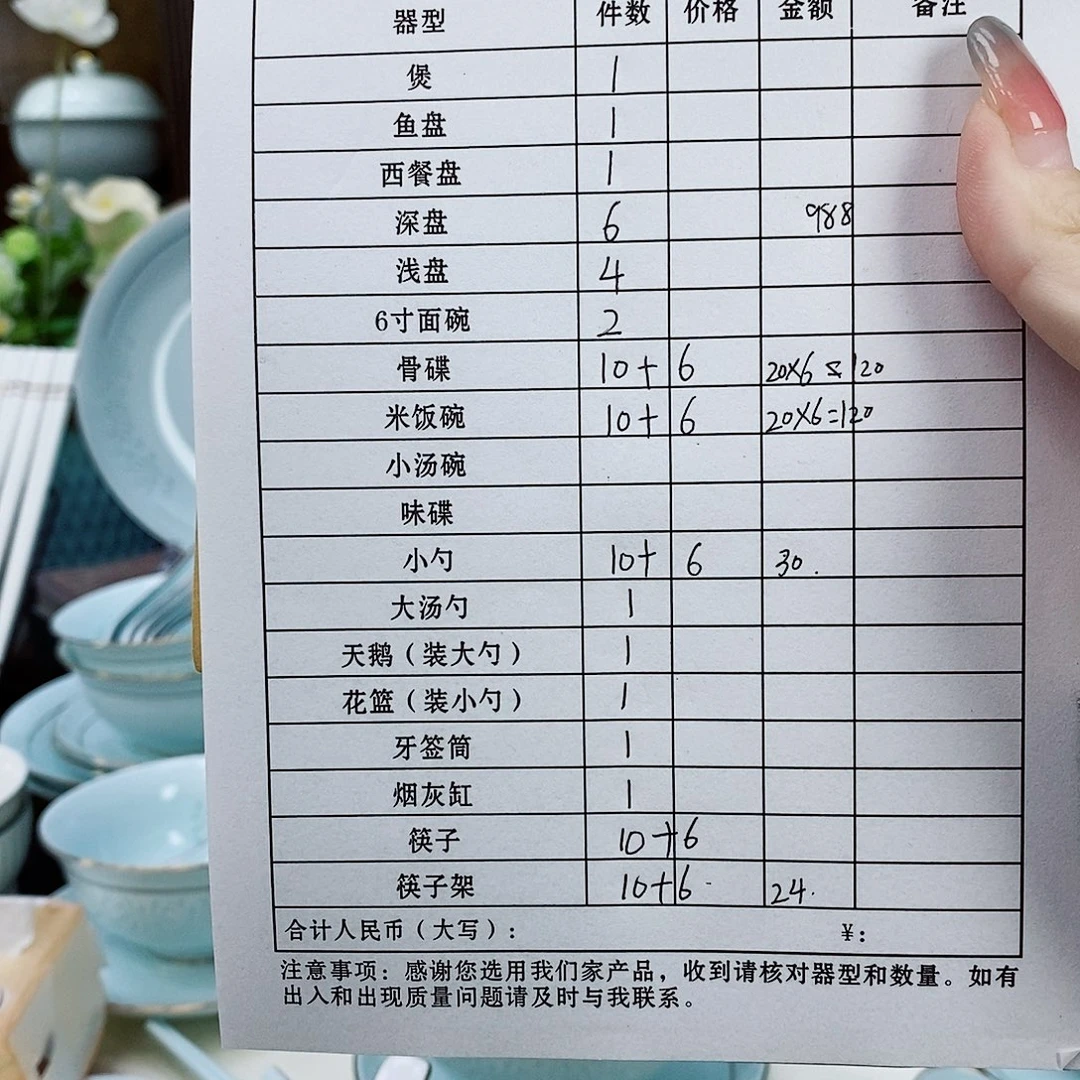 器型 件数 价格 金额 备注
煲 1
鱼盘 1
西餐盘 1
深盘 6 988
浅盘 4
6寸面碗 2
骨碟 10+6 20×6=120
米饭碗 10+6 20×6=120
小汤碗
味碟
小勺 10+6 30.
大汤勺 1
天鹅（装大勺） 1
花篮（装小勺） 1
牙签筒 1
烟灰缸 1
筷子 10+6
筷子架 10+6 24.
合计人民币（大写）： ¥：
注意事项：感谢您选用我们家产品，收到请核对器型和数量。如有
出入和出现质量问题请及时与我联系。